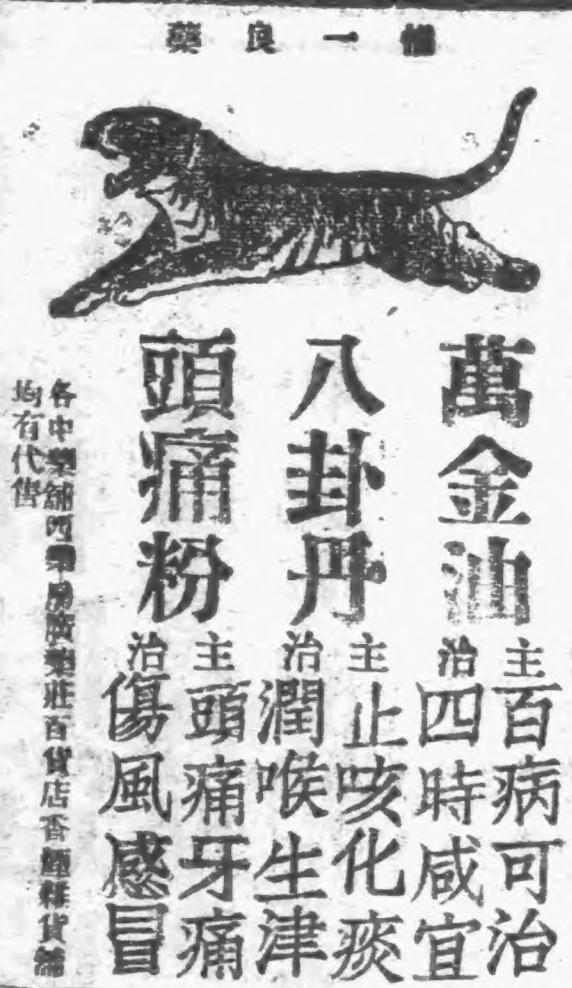 惟一良藥
萬金油
主治
百病可治
四時咸宜
八卦丹
主治
止咳化痰
潤喉生津
頭痛粉
主治
頭痛牙痛
傷風感冒
各中藥舖西藥房廣藥莊百貨店香煙雜貨舖
均有代售